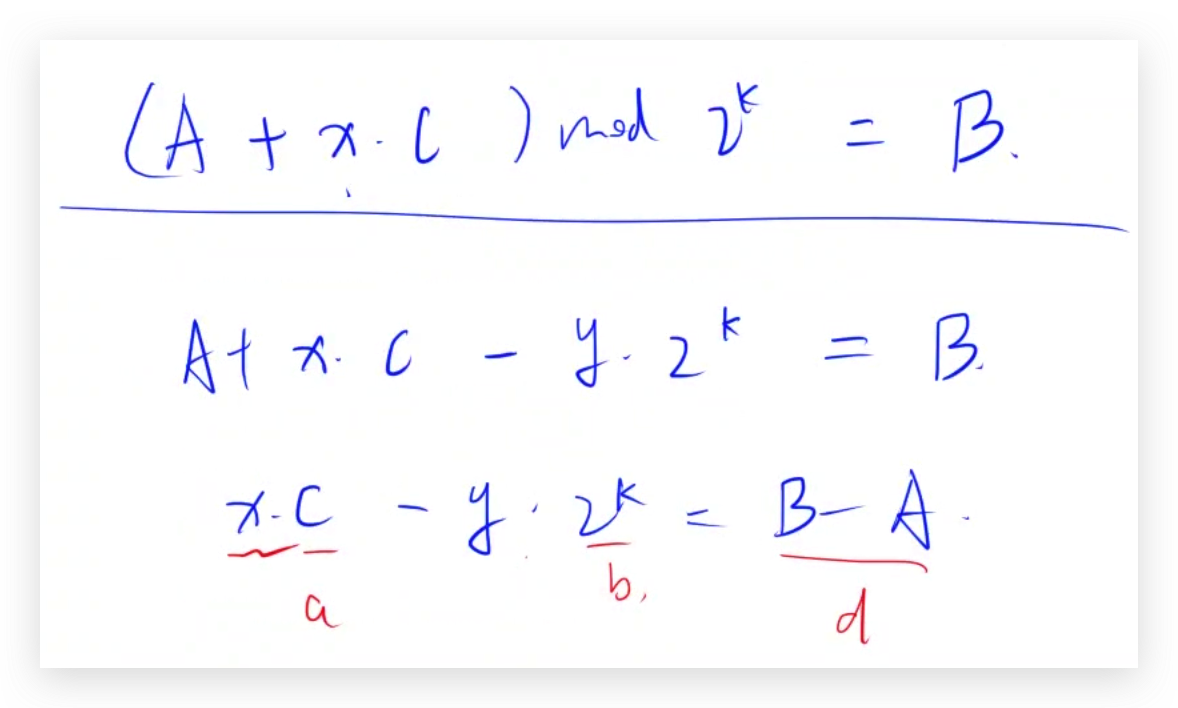 (A + x·C) mod 2^k = B.
A + x·C - y·2^k = B.
x·C - y·2^k = B - A.
a b, d